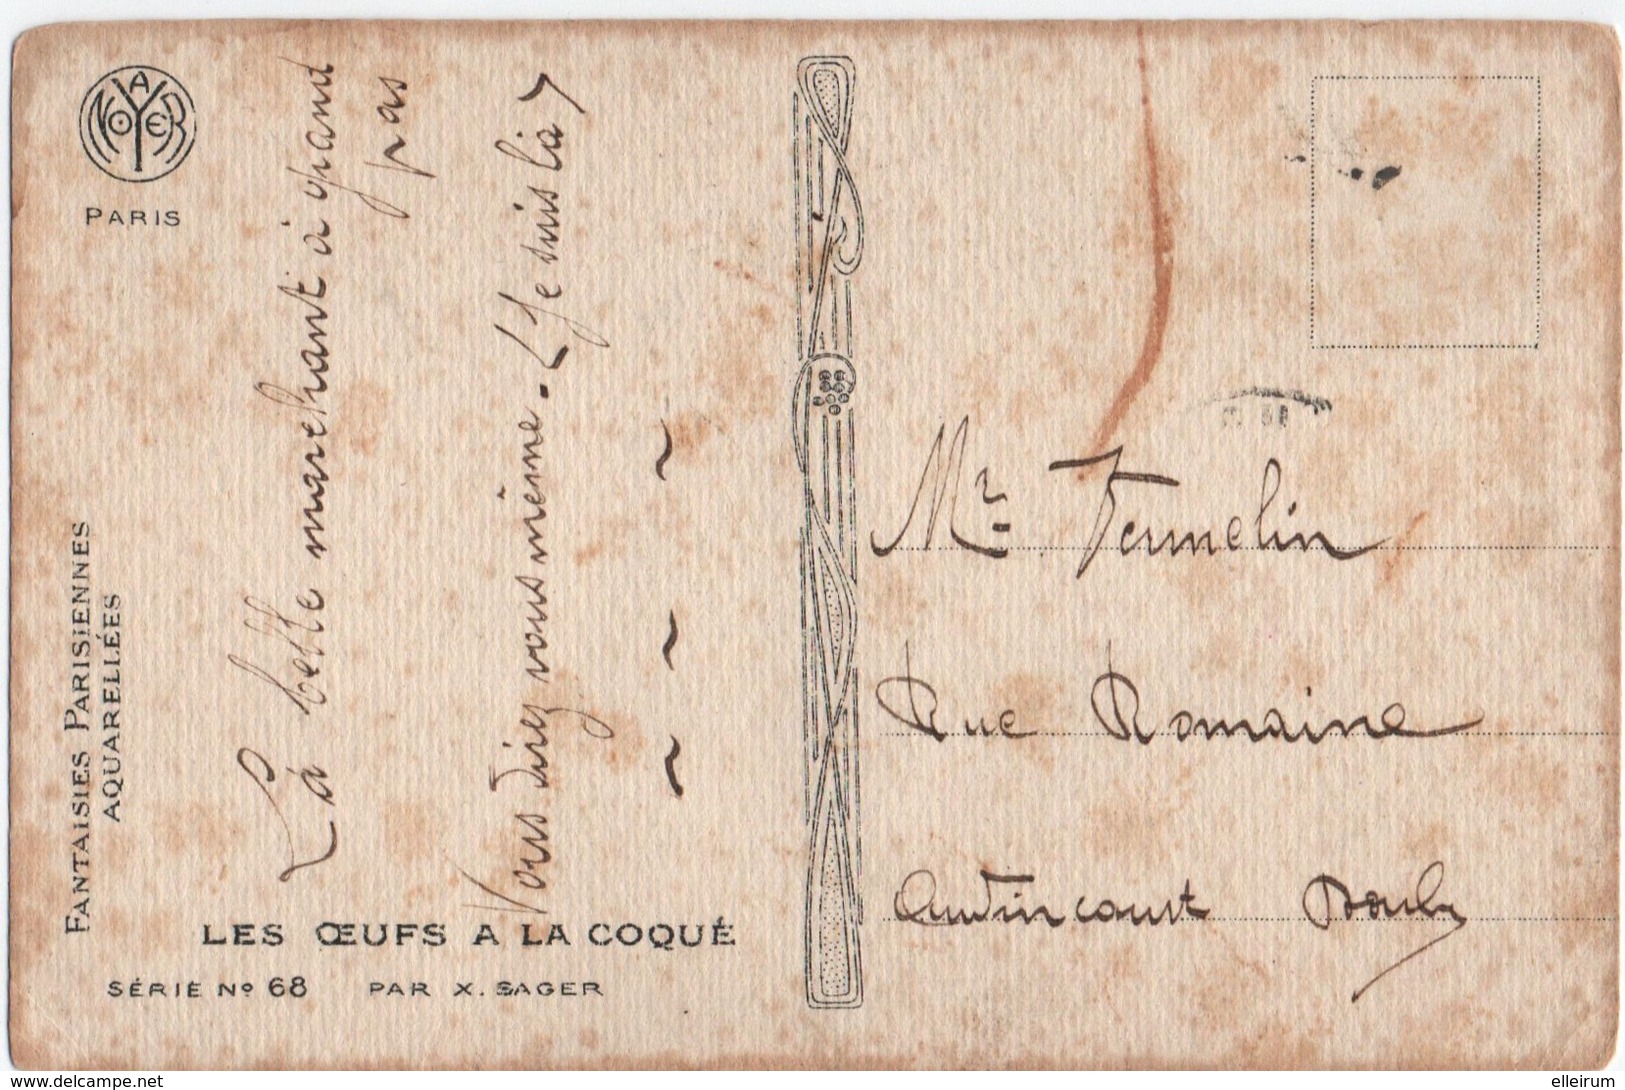 NOYER
A
PARIS
FANTAISIES PARISIENNES
AQUARELLÉES
La belle marchant à grand
pas
Vers diriez vous même. (Je suis là)
LES ŒUFS A LA COQUE
SÉRIE Nº 68 PAR X. SAGER
Mr. Vermelin
Rue Romaine
Audincourt Doubs
www.delcampe.net
elleirum